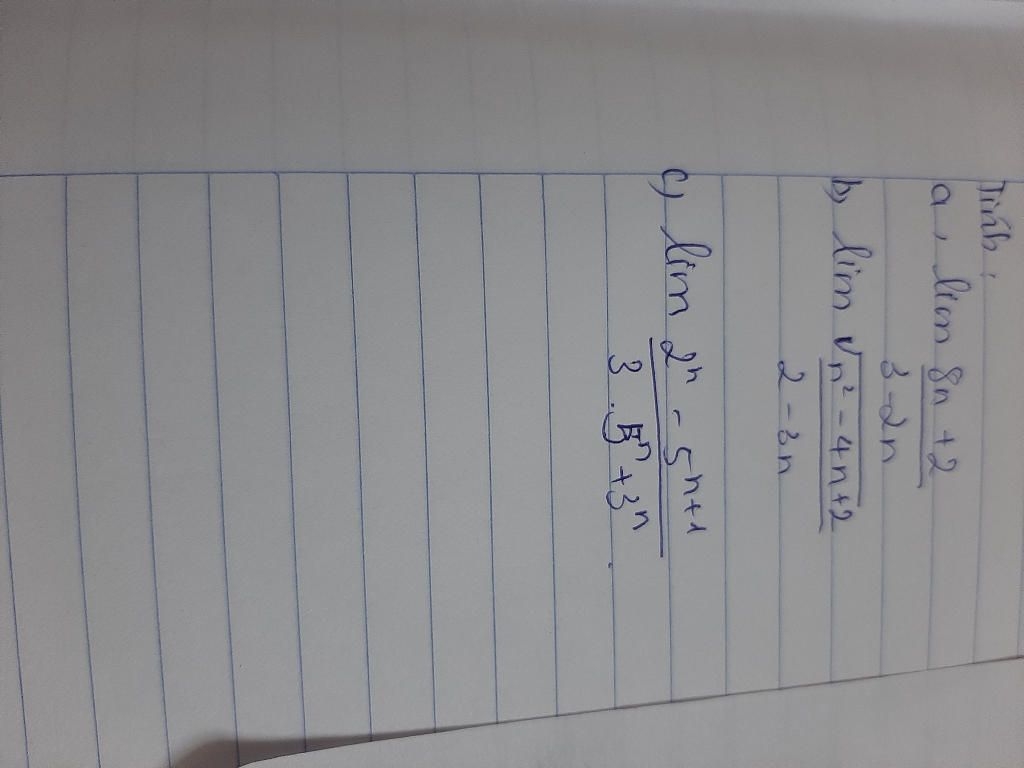 Tính:
a, lim 8n + 2
3 - 2n
b, lim √n² - 4n + 2
2 - 3n
c, lim 2ⁿ - 5ⁿ⁺¹
3 . 5ⁿ + 3ⁿ .